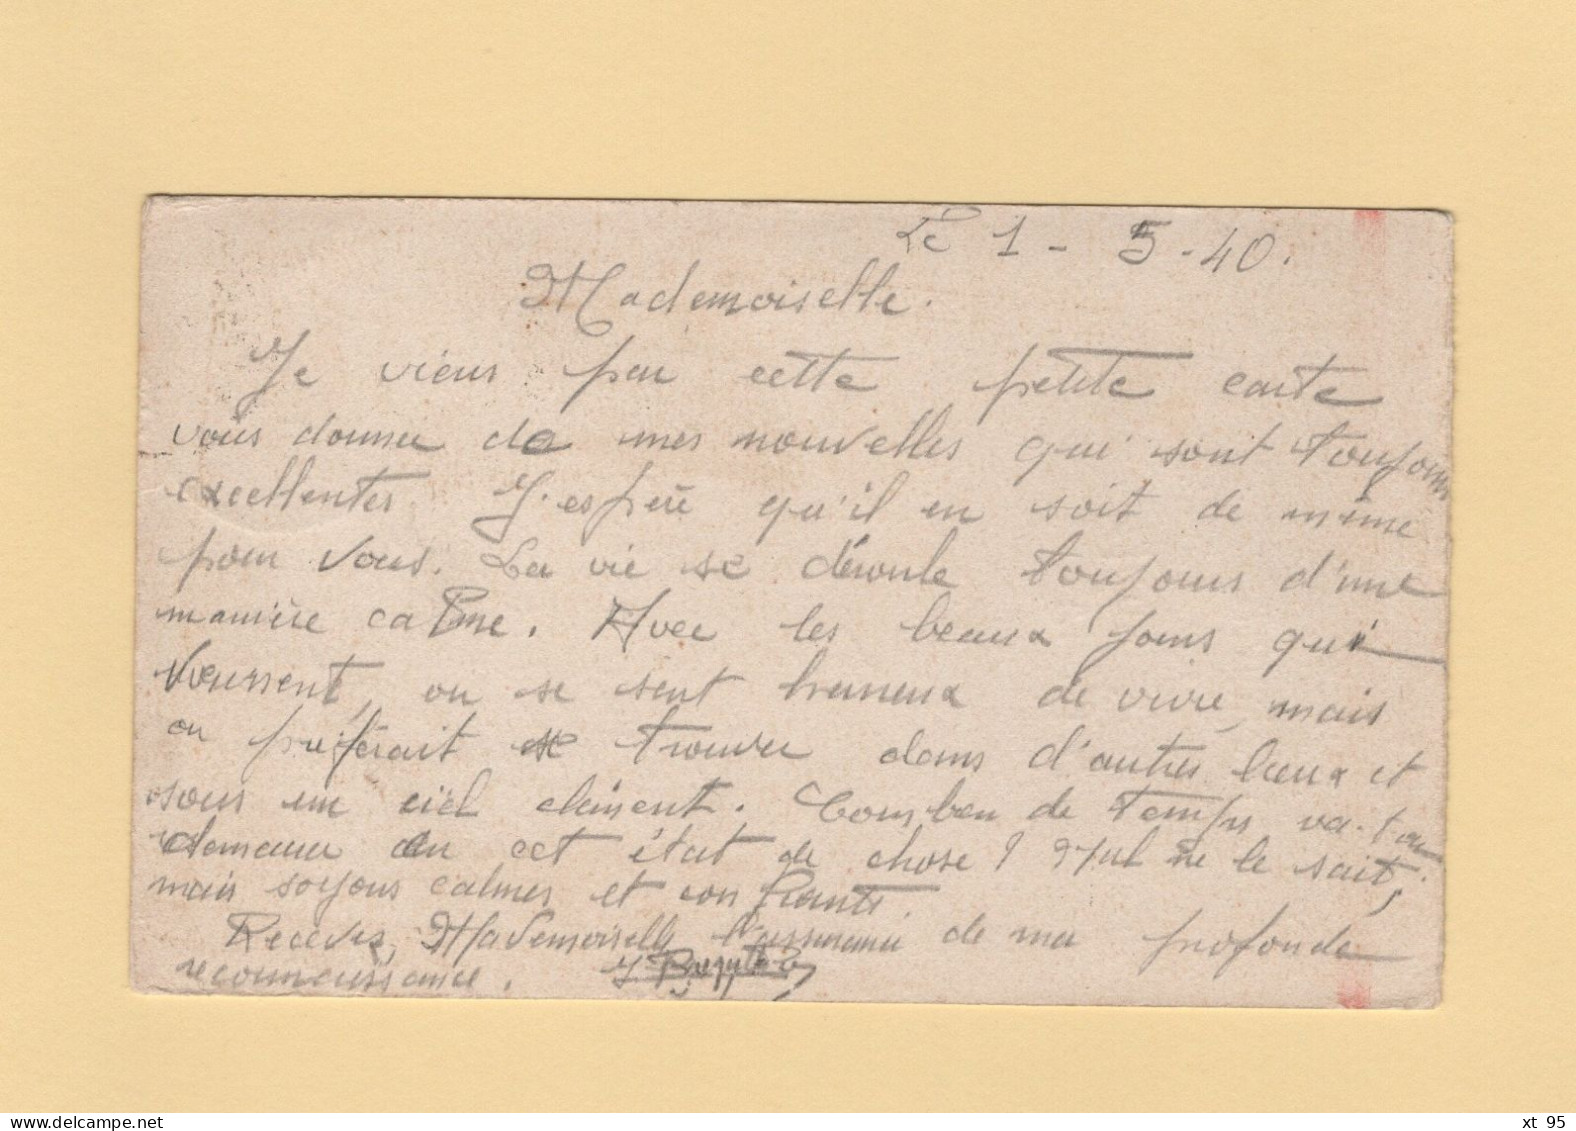 Le 1 - 5 - 40.
Mademoiselle.
Je viens par cette petite carte
vous donner de mes nouvelles qui sont toujours
excellentes. J'espère qu'il en soit de même
pour vous. La vie se déroule toujours d'une
manière calme. Avec les beaux jours qui
viennent, on se sent heureux de vivre, mais
on préférait se trouver dans d'autres lieux et
sous un ciel clément. Combien de temps va-t-on
demeurer en cet état de chose ? Nul ne le sait,
mais soyons calmes et confiants.
Recevez, Mademoiselle l'assurance de ma profonde
reconnaissance.
delcampe.net
xt 95